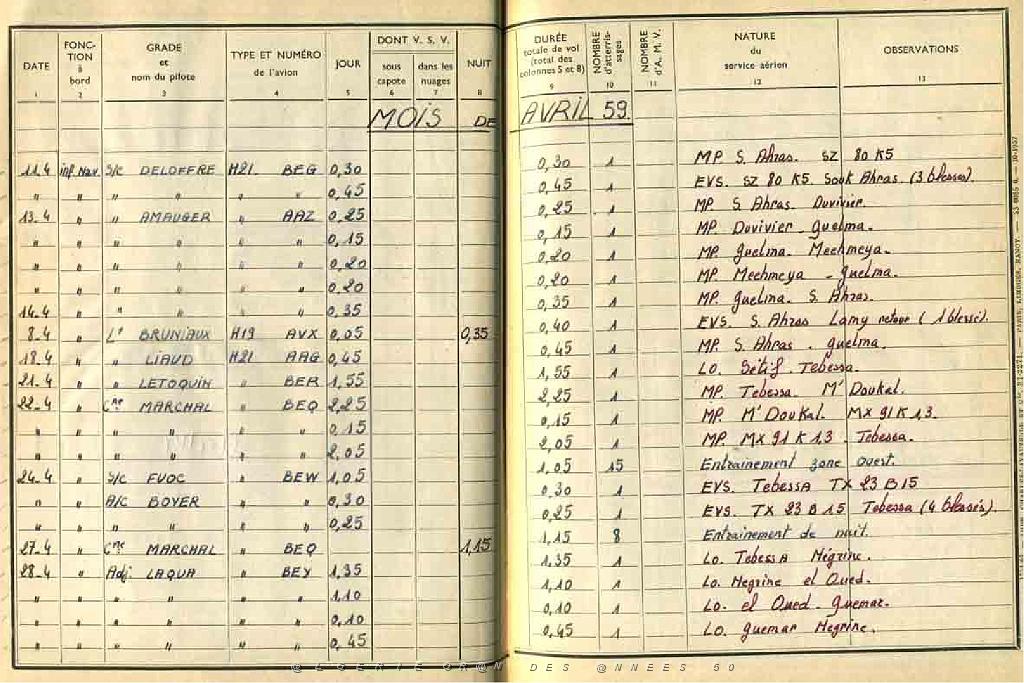 DATE FONCTION à bord GRADE et nom du pilote TYPE ET NUMÉRO de l'avion JOUR DONT V. S. V. sous capote dans les nuages NUIT DURÉE totale de vol (total des colonnes 5 et 8) NOMBRE d'atterrissages NOMBRE d'A. M. V. NATURE du service aérien OBSERVATIONS
1 2 3 4 5 6 7 8 9 10 11 12 13
MOIS DE AVRIL 59.
11.4 inf Nav. S/c DELOFFRE H21. BEG 0,30 0,30 1 MP. S. Ahras. SZ 80 K5
" " " " " " 0,45 0,45 1 EVS. SZ 80 K5. Souk Ahras. (3 blessés).
13.4 " " AMAUGER " AAZ 0,25 0,25 1 MP. S. Ahras Duvivier.
" " " " " " 0,15 0,15 1 MP. Duvivier. Guelma.
" " " " " " 0,20 0,20 1 MP. Guelma. Mechmeya.
" " " " " " 0,20 0,20 1 MP. Mechmeya - Guelma.
14.4 " " " " " 0,35 0,35 1 MP. Guelma. S. Ahras.
8.4 " Lt BRUNIAUX H19 AVX 0,05 0,35 0,40 1 EVS. S. Ahras Lamy retour (1 blessé).
18.4 " " LIAUD H21 AAG 0,45 0,45 1 MP. S. Ahras. Guelma.
21.4 " " LETOQUIN " BER 1,55 1,55 1 LO. Sétif. Tebessa.
22.4 " Cne MARCHAL " BEQ 2,25 2,25 1 MP. Tebessa. M' Doukal.
" " " " " " 0,15 0,15 1 MP. M' Doukal. MX 91 K 13.
" " " " " " 2,05 2,05 1 MP. MX 91 K 13. Tebessa.
24.4 " S/c FUOC " BEW 1,05 1,05 15 Entrainement zone ouest.
" " A/c BOYER " " 0,30 0,30 1 EVS. Tebessa TX 23 B 15
" " " " " " 0,25 0,25 1 EVS. TX 23 B 15 Tebessa (4 blessés).
27.4 " Cne MARCHAL " BEQ 1,15 1,15 8 Entrainement de nuit.
28.4 " Adj. LAQUA " BEY 1,35 1,35 1 LO. Tebessa Negrine.
" " " " " " 1,10 1,10 1 LO. Negrine el Oued.
" " " " " " 0,10 0,10 1 LO. el Oued. Guemar.
" " " " " " 0,45 0,45 1 LO. Guemar Negrine.